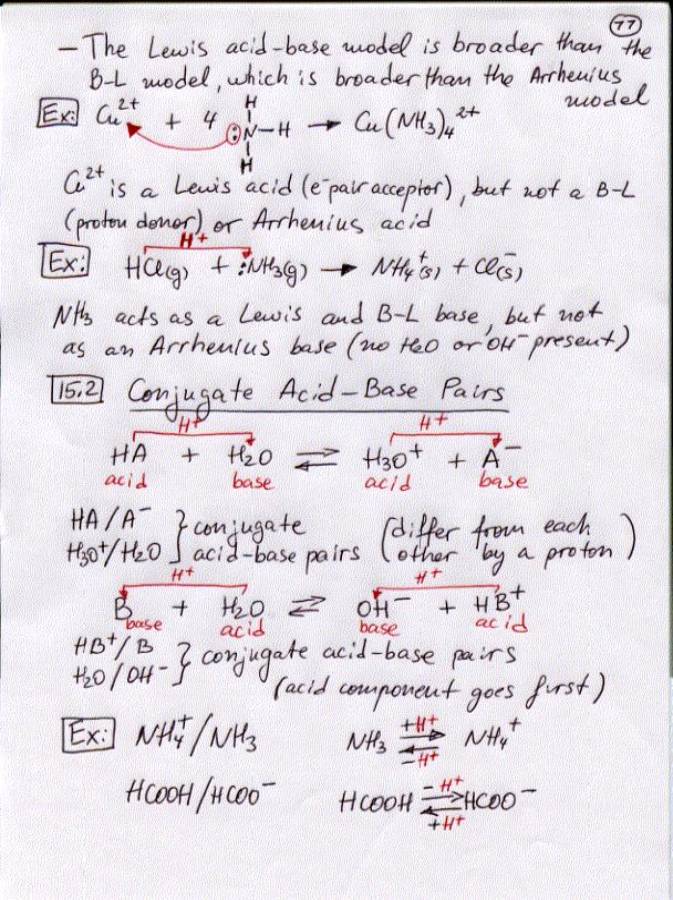 77
– The Lewis acid-base model is broader than the
B-L model, which is broader than the Arrhenius
model
Ex: Cu²⁺ + 4 :NH₃ → Cu(NH₃)₄²⁺
Cu²⁺ is a Lewis acid (e⁻pair acceptor), but not a B-L
(proton donor) or Arrhenius acid
H⁺
Ex: HCl(g) + :NH₃(g) → NH₄⁺(s) + Cl⁻(s)
NH₃ acts as a Lewis and B-L base, but not
as an Arrhenius base (no H₂O or OH⁻ present)
15.2 Conjugate Acid–Base Pairs
H⁺ H⁺
HA + H₂O ⇌ H₃O⁺ + A⁻
acid base acid base
HA/A⁻ } conjugate (differ from each
H₃O⁺/H₂O } acid-base pairs other by a proton)
H⁺ H⁺
B + H₂O ⇌ OH⁻ + HB⁺
base acid base acid
HB⁺/B } conjugate acid-base pairs
H₂O/OH⁻ }
(acid component goes first)
Ex: NH₄⁺/NH₃ NH₃ +H⁺ ⇌ −H⁺ NH₄⁺
HCOOH/HCOO⁻ HCOOH −H⁺ ⇌ +H⁺ HCOO⁻